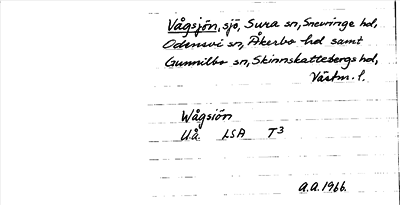 Vågsjön, sjö, Sura sn, Snevringe hd,
Odensvi sn, Åkerbo hd samt
Gunnilbo sn, Skinnskattebergs hd,
Västm. l.
Wågsiön
U.å. LSA T3
A.A. 1966.